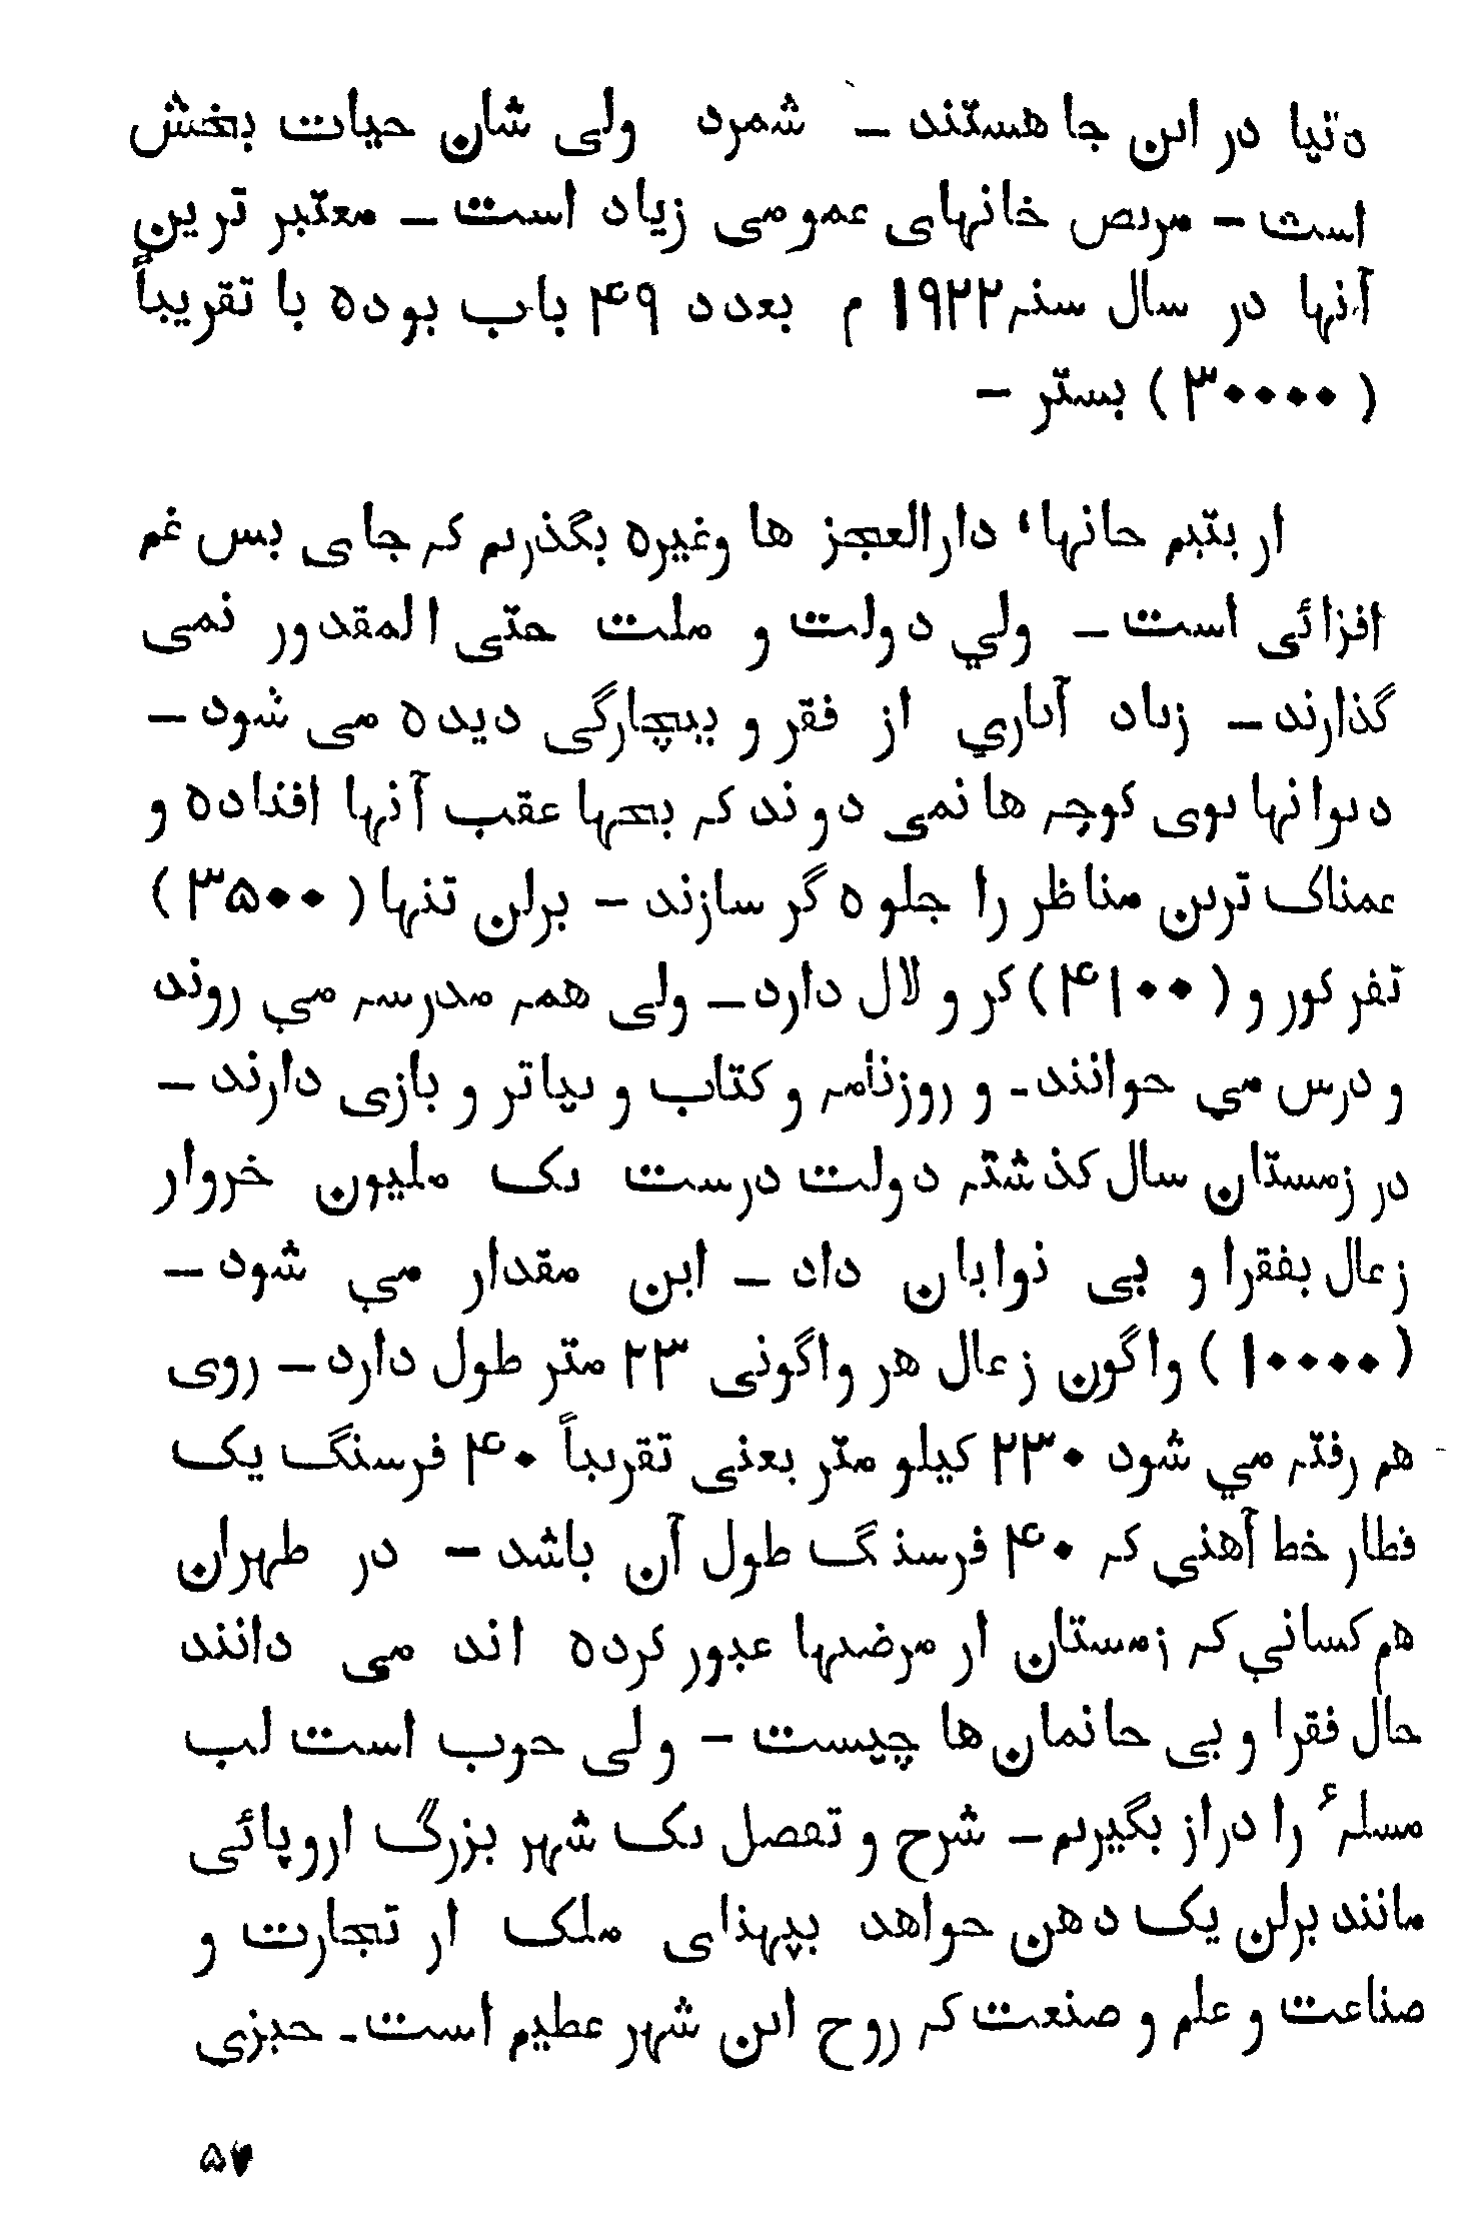 دنیا در این جا هستند – شمرد ولی شان حیات بخش
است – مریض خانهای عمومی زیاد است – معتبر ترین
آنها در سال سنه ۱۹۲۲ م بعدد ۴۹ باب بوده با تقریباً
( ۳۰۰۰۰ ) بستر –
از یتیم خانها، دارالعجز ها وغیره بگذریم که جای بس غم
افزائی است – ولي دولت و ملت حتی المقدور نمی
گذارند – زیاد آثاري از فقر و بیچارگی دیده می شود –
دیوانها توی کوچه ها نمی دوند که بچها عقب آنها افتاده و
غمناک ترین مناظر را جلوه گر سازند – برلن تنها ( ۳۵۰۰ )
نفر کور و ( ۴۱۰۰ ) کر و لال دارد – ولی همه مدرسه مي روند
و درس مي خوانند – و روزنامه و کتاب و تیاتر و بازی دارند –
در زمستان سال گذشته دولت درست یک ملیون خروار
زغال بفقرا و بی نوایان داد – این مقدار مي شود –
( ۱۰۰۰۰ ) واگون زغال هر واگونی ۲۳ متر طول دارد – روی
هم رفته مي شود ۲۳۰ کیلو متر یعنی تقریباً ۴۰ فرسنگ یک
قطار خط آهني که ۴۰ فرسنگ طول آن باشد – در طهران
هم کساني که زمستان از مرضها عبور کرده اند می دانند
حال فقرا و بی خانمان ها چیست – ولی خوب است لب
مسلهٔ را دراز بگیریم – شرح و تفصل یک شهر بزرگ اروپائی
مانند برلن یک دهن خواهد بپهنای ملک از تجارت و
صناعت و علم و صنعت که روح این شهر عظیم است – چیزي